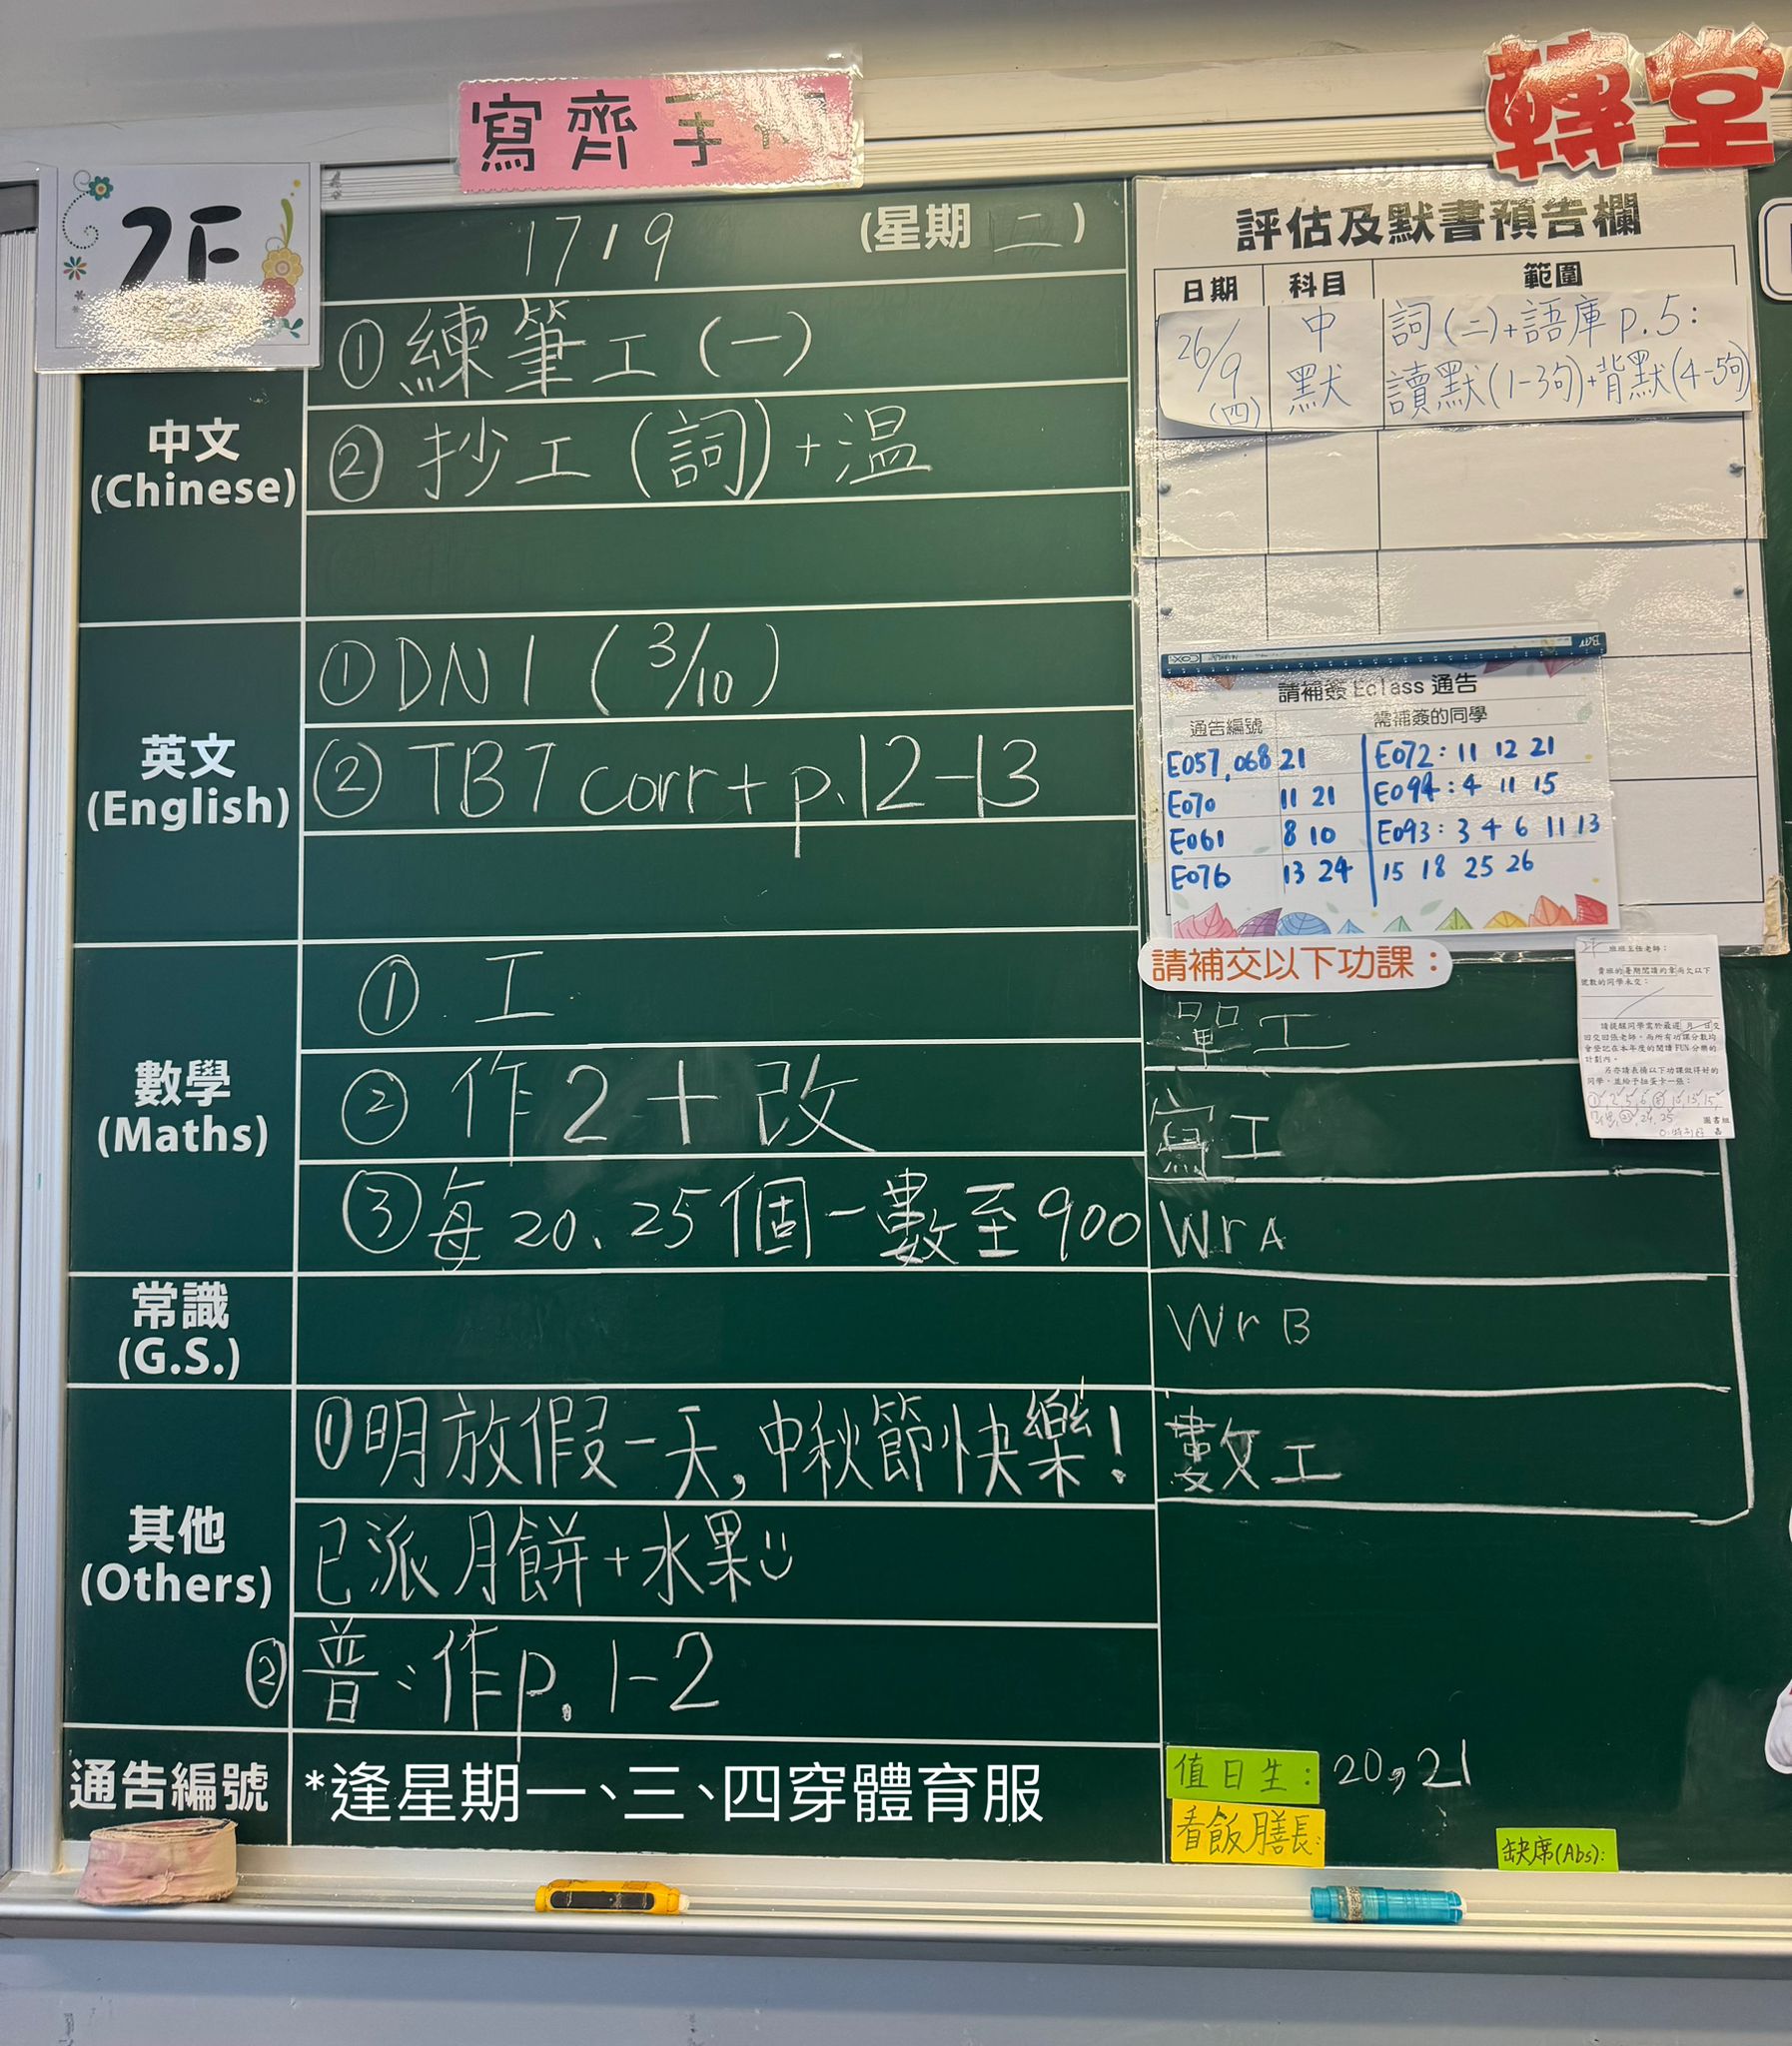 寫齊手
轉堂
2F
17/9 (星期二)
中文
(Chinese)
①練筆工(一)
②抄工(詞)+温
英文
(English)
①DN1(3/10)
②TB7 corr+p.12-13
數學
(Maths)
①工
②作2+改
③每20、25個一數至900
常識
(G.S.)
其他
(Others)
①明放假一天,中秋節快樂!
已派月餅+水果
②普:作p.1-2
通告編號
*逢星期一、三、四穿體育服
評估及默書預告欄
日期 科目 範圍
26/9 (四) 中默 詞(二)+語庫p.5:
讀默(1-3句)+背默(4-5句)
請補簽Eclass通告
通告編號 需補簽的同學
E057,068 21 E072: 11 12 21
E070 11 21 E094: 4 11 15
E061 8 10 E093: 3 4 6 11 13
E076 13 24 15 18 25 26
請補交以下功課:
單工
寫工
Wr A
Wr B
數工
2F 班班主任老師:
貴班的暑期閱讀約章尚欠以下
號數的同學未交:
圖書組
值日生: 20,21
看飯膳長:
缺席(Abs):